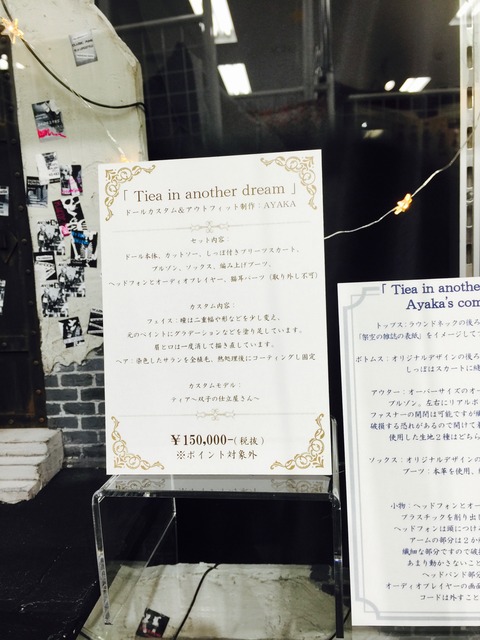 「 Tiea in another dream 」
ドールカスタム＆アウトフィット制作：AYAKA
セット内容：
ドール本体、カットソー、しっぽ付きプリーツスカート、
ブルゾン、ソックス、編み上げブーツ、
ヘッドフォンとオーディオプレイヤー、猫耳パーツ（取り外し不可）
カスタム内容：
フェイス：瞳は二重幅や形などを少し変え、
元のペイントにグラデーションなどを塗り足しています。
眉と口は一度消して描き直しています。
ヘア：染色したサランを全植毛、熱処理後にコーティングし固定
カスタムモデル：
ティア～双子の仕立屋さん～
￥150,000-(税抜)
※ポイント対象外
「 Tiea in anothe
Ayaka's com
トップス：ラウンドネックの後ろ
「架空の雑誌の表紙」をイメージして
ボトムス：オリジナルデザインの後ろ
しっぽはスカートに縫
アウター：オーバーサイズのオー
ブルゾン、左右にリアルポ
ファスナーの開閉は可能ですが繊
破損する恐れがあるので開けて着
使用した生地２種はどちら
ソックス：オリジナルデザインの
ブーツ：本革を使用、
小物：ヘッドフォンとオー
プラスチックを削り出し
ヘッドフォンは頭につける
アームの部分は２か
繊細な部分ですので破損
あまり動かさないこと
ヘッドバンド部分
オーディオプレイヤーの画面
コードは外すこと